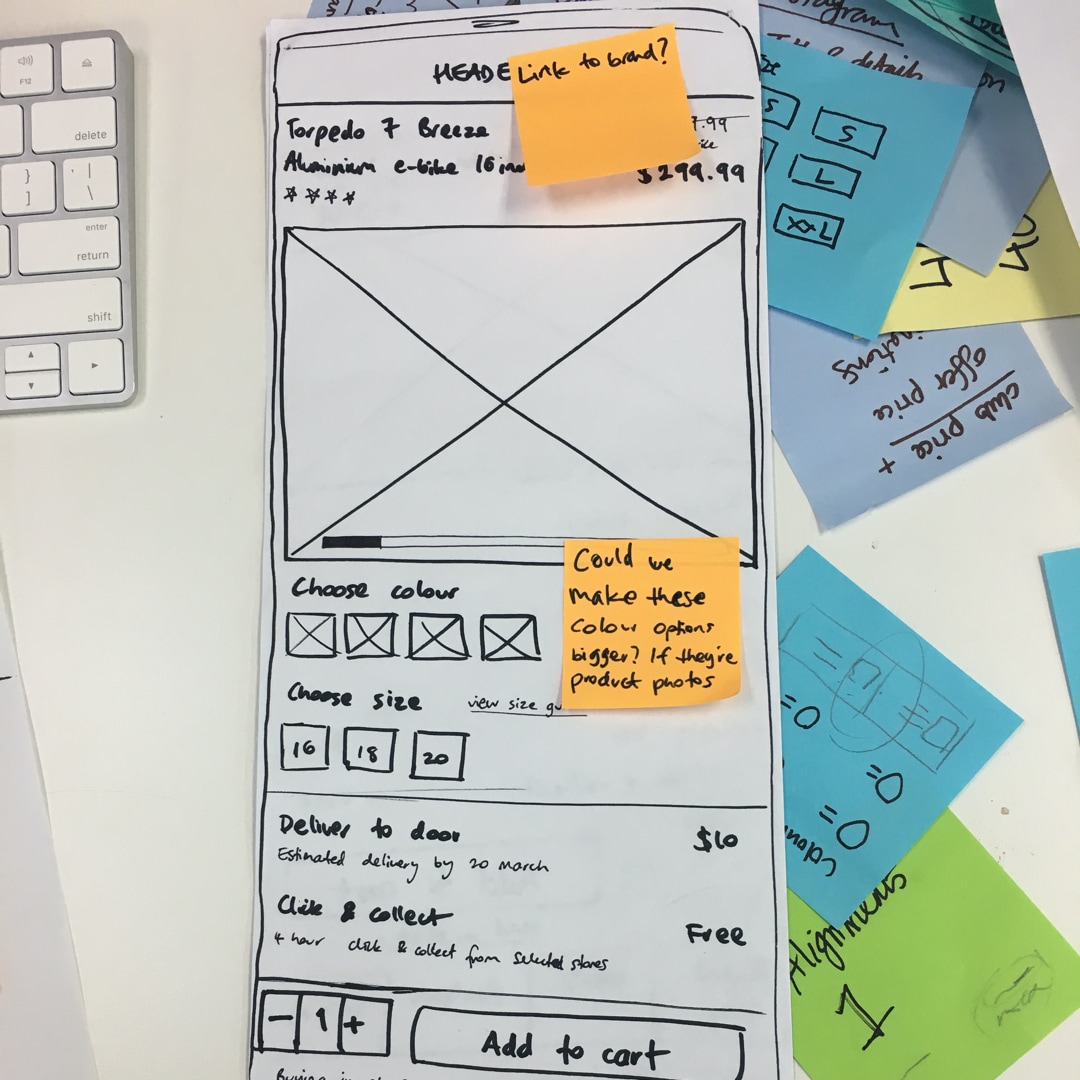 F12
delete
}
]
|
\
enter
return
shift
HEADE
Link to brand?
Torpedo 7 Breeze
7.99
Aluminium e-bike 16 in
$299.99
Choose colour
Could we
make these
colour options
bigger? If they're
product photos
Choose size
view size gu
16
18
20
Deliver to door
$10
Estimated delivery by 20 March
Click & collect
Free
4 hour click & collect from selected stores
- 1 +
Add to cart
details
S
S
L
XXL
club price +
offer price
Alignments
1